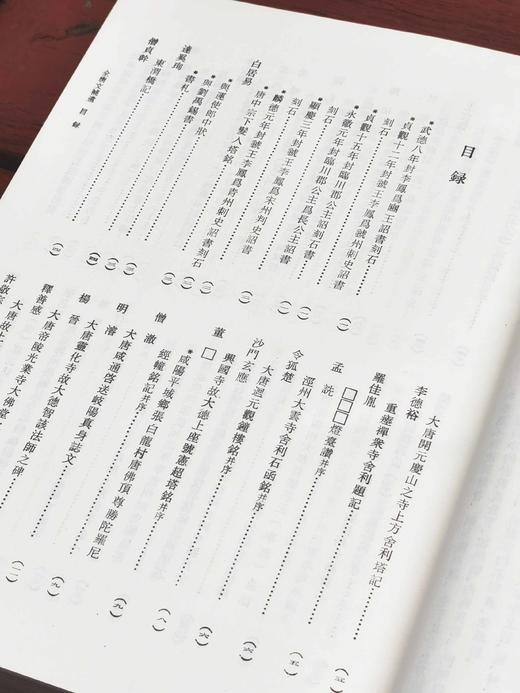 目録
武德八年封李鳳爲豳王詔書刻石……(一)
貞觀十二年封虢王李鳳爲虢州刺史詔書
刻石……(一)
貞觀十五年封臨川郡公主詔刻石書
永徽元年封臨川郡公主爲長公主詔書
刻石……(一)
顯慶三年封虢王李鳳爲宋州刺史詔書
刻石……(二)
麟德元年封虢王李鳳爲青州刺史詔書刻石
唐中宗下髮入塔銘……(三)
白居易
與運使郎中狀……(三)
與劉禹錫書……(三)
達奚珣
書札……(三)
東渭橋記……(四)
僧貞幹
全唐文補遺 目録
大唐開元慶山之寺上方舍利塔記
李德裕
重瘞禪衆寺舍利題記……(五)
羅佳胤
□□□燈臺讚并序
孟詵
涇州大雲寺舍利石函銘并序……(五)
令狐楚
大唐迴元觀鐘樓銘并序……(六)
沙門玄應
興國寺故大德上座號憲超塔銘并序……(六)
董□
咸陽平城鄉張白龍村唐佛頂尊勝陀羅尼
經幢銘記并序……(八)
僧澈
大唐咸通啓送岐陽真身誌文……(九)
明濬
大唐靈化寺故大德智該法師之碑……(九)
楊晉
大唐帝陵光業寺大佛堂
釋善感
大唐故
許敬宗